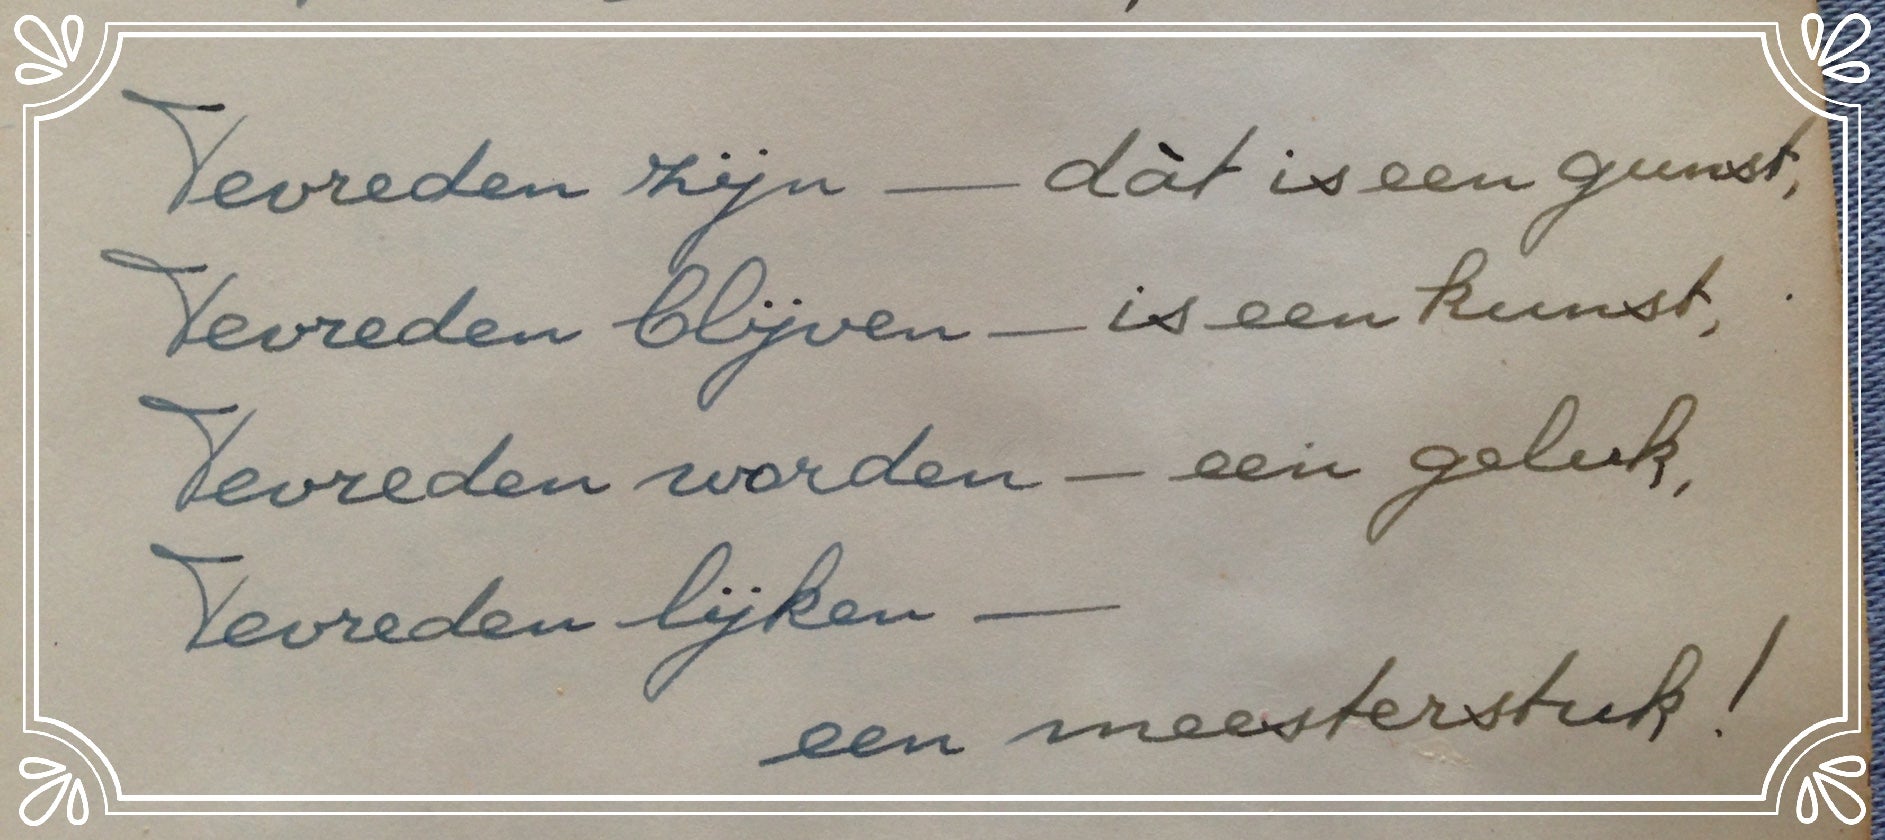 Tevreden zijn — dàt is een gunst,
Tevreden blijven — is een kunst,
Tevreden worden — een geluk,
Tevreden lijken —
een meesterstuk!